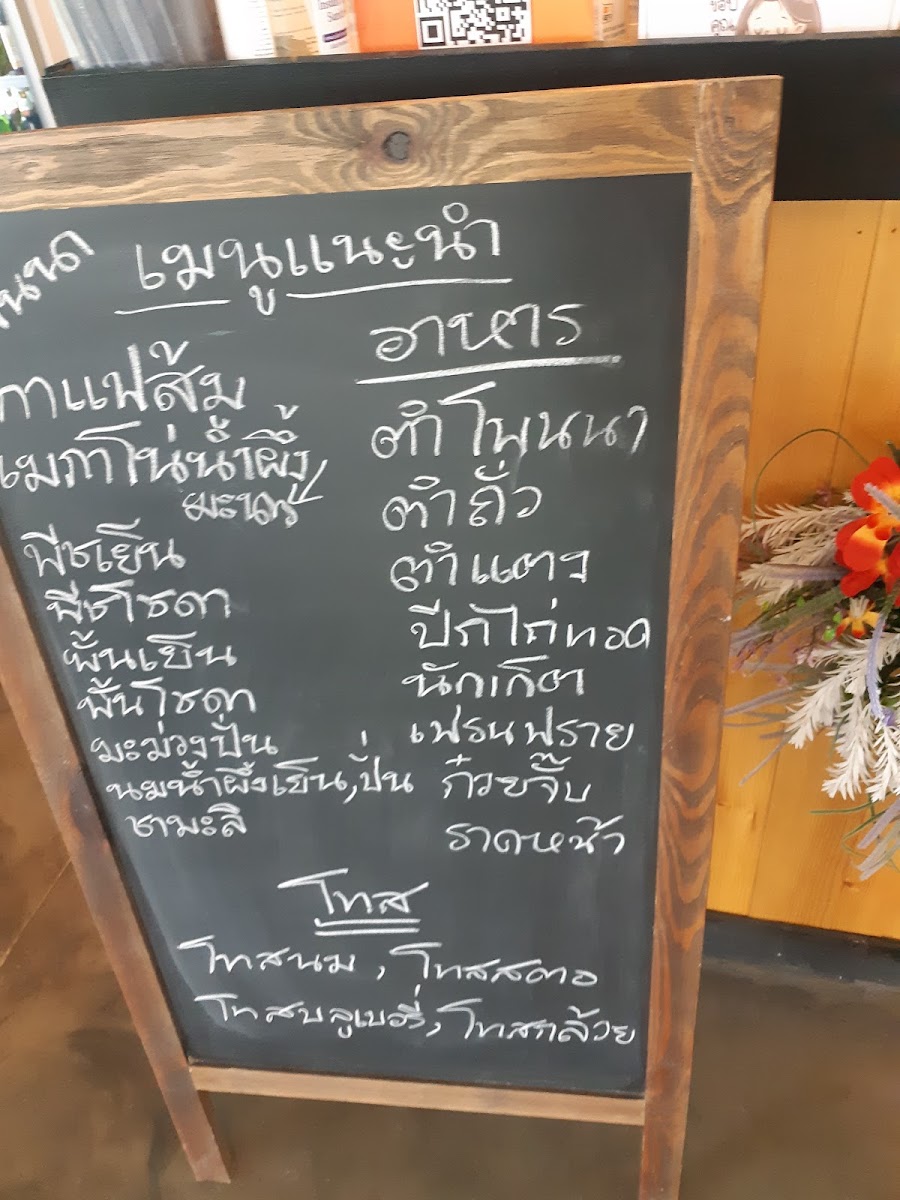 เมนูแนะนำ
กาแฟส้ม
เมกาโน่น้ำผึ้ง
มะนาว
พีชเย็น
พีชโซดา
พั้นเย็น
พั้นโซดา
มะม่วงปั่น
นมน้ำผึ้งเย็น,ปั่น
ชามะลิ
อาหาร
ตำโพนนา
ตำถั่ว
ตำแตง
ปีกไก่ทอด
นักเก็ต
เฟรนฟราย
ก๋วยจั๊บ
ราดหน้า
โทส
โทสนม , โทสสตอ
โทสบลูเบอรี่, โทสกล้วย